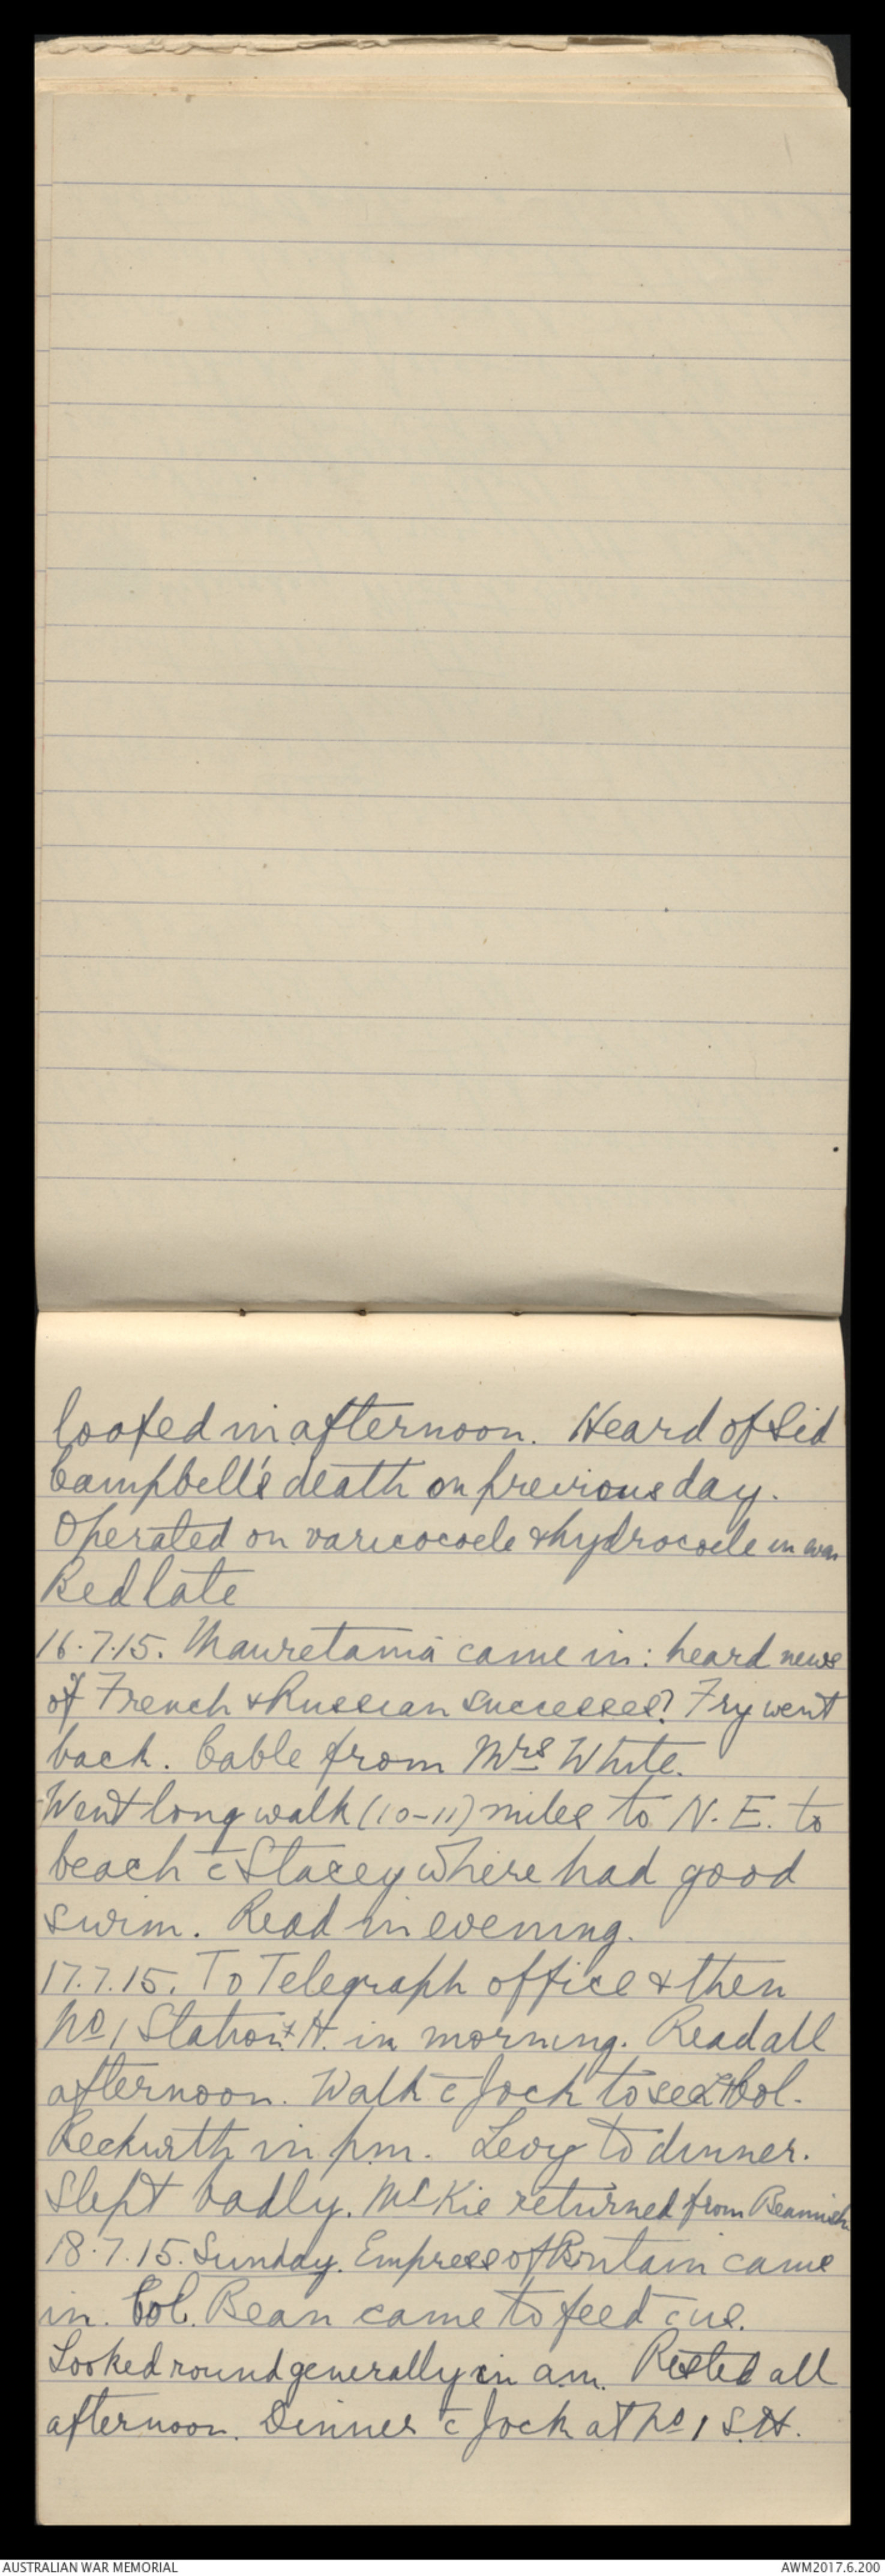 loafed in afternoon. Heard of Sid
Campbell's death on previous day.
Operated on varicocoele & hydrocoele in
Bed late
16.7.15. Mauretania came in: heard news
of French & Russian successes? Fry went
back. Cable from Mrs White.
Went long walk (10-11) miles to N.E. to
beach c̄ Stacey where had good
swim. Read in evening.
17.7.15. To Telegraph office & then
No 1 Station? H. in morning. Read all
afternoon. Walk c̄ Jock to see Col.
in p.m. Levy to dinner.
Slept badly. McKie returned from
18.7.15. Sunday. Empress of Britain came
in. Col. Bean came to feed c̄ us.
Looked round generally in a.m. Rested all
afternoon. Dinner c̄ Jock at No 1 S.H.
AUSTRALIAN WAR MEMORIAL
AWM2017.6.200